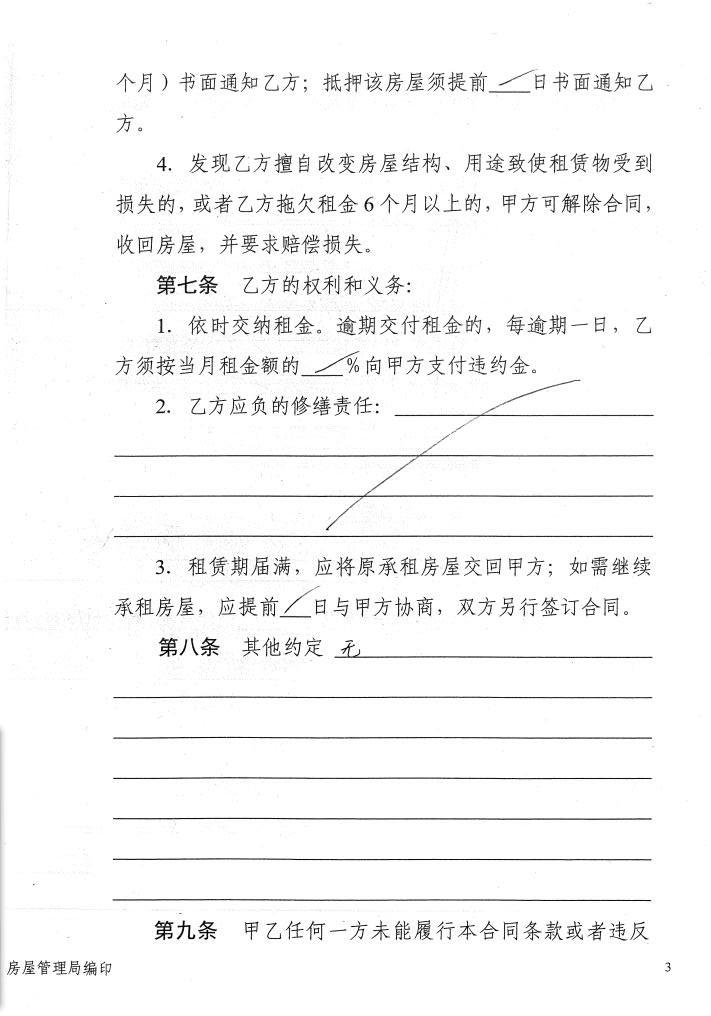 个月）书面通知乙方；抵押该房屋须提前____日书面通知乙
方。
4. 发现乙方擅自改变房屋结构、用途致使租赁物受到
损失的，或者乙方拖欠租金 6 个月以上的，甲方可解除合同，
收回房屋，并要求赔偿损失。
第七条 乙方的权利和义务：
1. 依时交纳租金。逾期交付租金的，每逾期一日，乙
方须按当月租金额的____%向甲方支付违约金。
2. 乙方应负的修缮责任：
3. 租赁期届满，应将原承租房屋交回甲方；如需继续
承租房屋，应提前____日与甲方协商，双方另行签订合同。
第八条 其他约定 无
第九条 甲乙任何一方未能履行本合同条款或者违反
房屋管理局编印
3